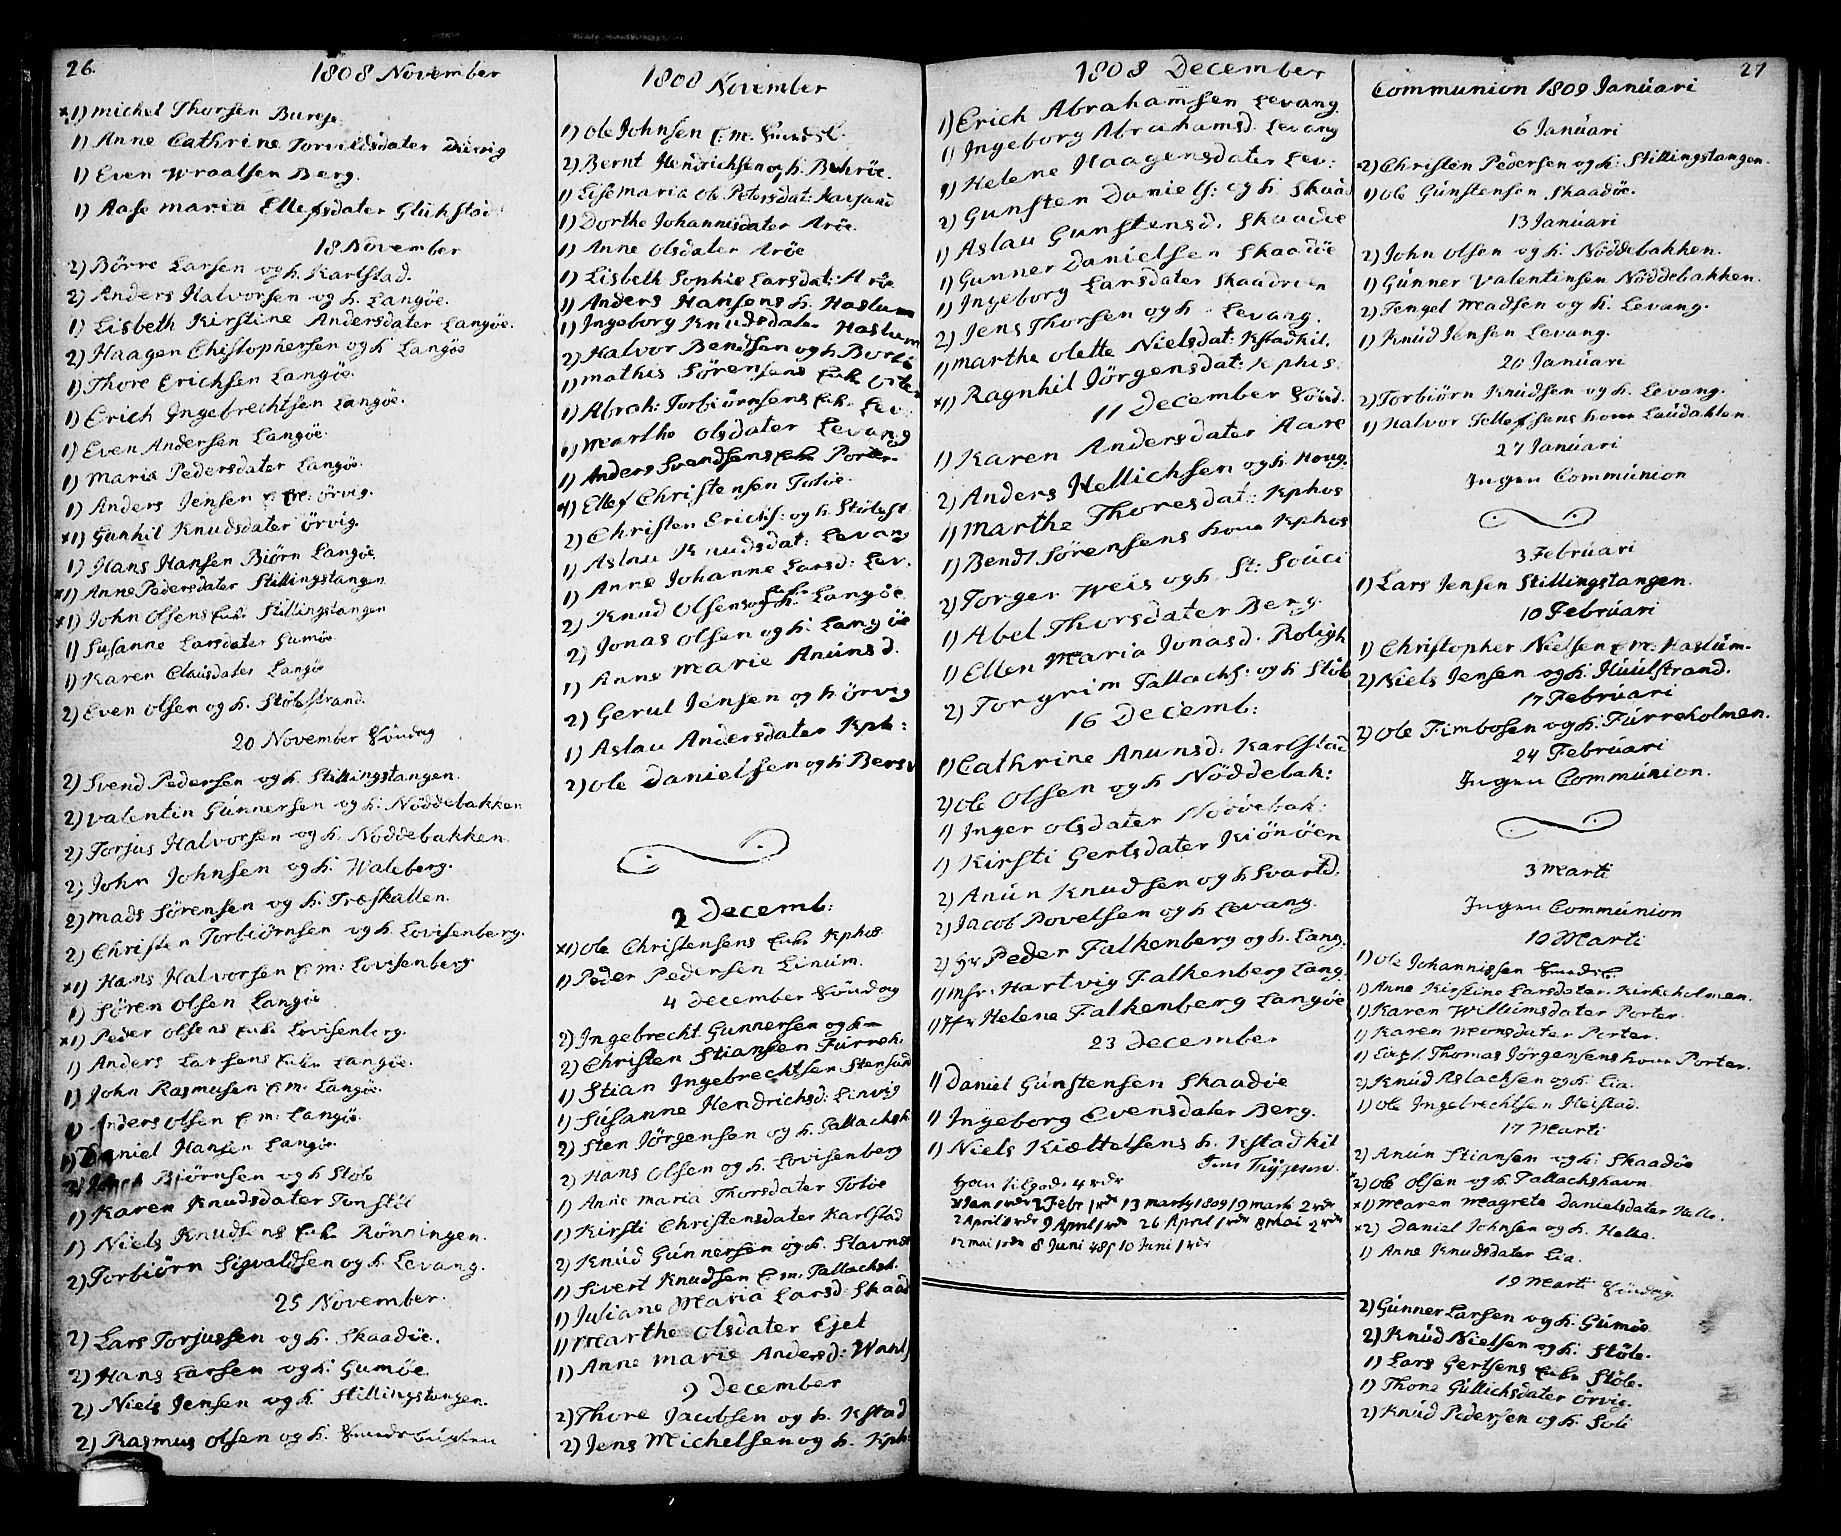 26.
1808 November
×1) Michel Thorsen Burøe
1) Anne Cathrine Torvildsdater
1) Even Wraalsen Berg.
1) Aase Maria Ellefsdater Glükstad
18 November
2) Börre Larsen og h. Karlstad.
2) Anders Halvorsen og h. Langöe.
1) Lisbeth Kirstine Andersdater Langöe.
2) Haagen Christophersen og h Langöe
1) Thore Erichsen Langöe.
1) Erich Ingebrechtsen Langöe.
1) Even Andersen Langöe
1) Maria Pedersdater Langöe
1) Anders Jensen E.m: örvig.
×1) Gunhil Knudsdater örvig.
1) Hans Hansen Biörn Langöe
×1) Anne Pedersdater Stillingstangen
×1) John Olsens Enke Stillingstangen
1) Susanne Larsdater Gumöe
1) Karen Clausdater Langöe
2) Even Olsen og h. Stölestrand.
20 November Söndag
2) Svend Pedersen og h. Stillingstangen.
2) Valentin Gúnnersen og h: Nöddebakken
2) Torjus Halvorsen og h. Nöddebakken
2) John Johnsen og h. Waleberg.
2) Mads Sörensen og h. Træskatten.
2) Christen Torbiörnsen og h. Lovisenberg.
×1) Hans Halvorsen E m: Lovisenberg.
1) Sören Olsen Langöe
×1) Peder Olsens Enke Lovisenberg.
1) Anders Larsens Enke Langöe.
1) John Rasmusen E.m. Langöe.
1) Anders Olsen E m: Langöe
1) Daniel Hansen Langöe
2) Biörnsen og h Stöle
1) Karen Knudsdater Tonstöl
1) Niels Knudsens Enke Rönningen.
2) Torbiörn Sigvaldsen og h. Levang.
25 November.
2) Lars Torjussen og h. Skaadöe.
2) Hans Larsen og h: Gumöe.
2) Niels Jensen og h. Stillingstangen.
2) Rasmus Olsen og h.
1808 November
1) Ole Johnsen E.m.
2) Bernt Hendrichsen og h. Buhröe.
1) Lise Maria Ole Petersdat:
1) Dorthe Johannisdater Aröe.
1) Anne Olsdater Aröe
1) Lisbeth Sophie Larsdat: Aröe
1) Anders Hansens h. Haslum
1) Ingeborg Knudsdater Haslum
2) Halvor Bendsen og h
1) Mathis Sörensens Enke
1) Abrah: Torbiörnsens Enke Lev.
1) Marthe Olsdater Levang
1) Anders Svendsens Enke Porter
×1) Ellef Christensen Toböe.
2) Christen Erichs: og h. Stölest
1) Aslau Knudsdat: Levang
1) Anne Johanne Larsd: Lev.
2) Knud Olsens og h. Langöe
2) Jonas Olsen og h: Langöe
1) Anne Marie Anúnsd.
2) Gerul Jensen og h örvig
1) Aslau Andersdater Kph:
2) Ole Danielsen og h Bersv
2 Decemb:
×1) Ole Christensens Enke Kphos
1) Peder Pedersen Linúm.
4 December Söndag
2) Ingebrecht Gunnersen og h
2) Christen Stiansen Fúrreh.
1) Stian Ingebrechtsen Stensund
1) Susanne Hendrichsd: Linvig
2) Sten Jörgensen og h. Tallachsh.
2) Hans Olsen og h. Lovisenberg
1) Anne Maria Thorsdater Toböe
1) Kirsti Christensdater Karlstad
2) Knúd Gúnnersen og h. Stavnes
1) Sivert Knudsen E.m. Tallachsh.
1) Juliane Maria Larsd: Skaad
1) Marthe Olsdater Ejet
1) Anne Marie Andersd:
9 December
2) Thore Jacobsen og h. Kstad
2) Jens Michelsen og h. Kph:
1808 December
1) Erich Abrahamsen Levang.
1) Ingeborg Abrahamsd. Levang
1) Helene Haagensdater Lev:
2) Gunsten Daniels: og h. Skaad
1) Aslau Gunstensd. Skaadöe
1) Gunner Danielsen Skaadöe
1) Ingeborg Larsdater
2) Jens Thorsen og h. Levang.
1) Marthe Olette Nielsdat: Kstadkil.
×1) Ragnhil Jörgensdat: Kphus
11 December Sönd.
1) Karen Andersdater Aare
2) Anders Hellichsen og h. Houg.
1) Marthe Thoresdat: Kphos
1) Bendt Sörensens hone Kphos
2) Torger Weis og h.
1) Abel Thorsdater Berg
1) Ellen Maria Jonasd. Roligh
2) Torgrim Tallachs: og h Stöle
16 Decemb:
1) Cathrine Anunsd: Karlstad
2) Ole Olsen og h Nöddebak:
1) Inger Olsdater Nöddebak:
1) Kirsti Gertsdater Kiönöen
2) Anún Knudsen og h Svartd.
2) Jacob Povelsen og h Levang.
2) Hr Peder Falkenberg og h. Lang.
1) Msr: Hartvig Falkenberg Lang.
1) Jfr Helene Falkenberg Langöe
23 December
1) Daniel Gúnstensen Skaadöe
1) Ingeborg Evensdater Berg.
1) Niels Kiættelsens h. Kstadkil
13 Marty 1809 19 Mark 2 rdr
2 April 1 rdr 9 April 1 rdr 26 April 1 rdr 8 Mai 2 rdr
12 Mai 1 rdr 8 Juni 10 Juni 1 rdr
27
Communion 1809 Janúari
6 Janúari
×2) Christen Pedersen og h. Stillingstangen.
1) Ole Gúnstensen Skaadöe.
13 Janúari
2) John Olsen og h. Nöddebakken.
1) Gúnner Valentinsen Nöddebakken.
2) Tengel Madsen og h. Levang.
1) Knúd Jensen Levang.
20 Janúari
2) Torbiörn Knúdsen og h. Levang.
1) Halvor Tellefsens hone Laúdahlen
27 Janúari
Ingen Commúnion
3 Febrúari
1) Lars Jensen Stillingstangen.
10 Febrúari
1) Christopher Nielsen E.m: Haslúm.
2) Niels Jensen og h. Húúlstrand.
17 Febrúari
2) Ole Timbosen og h: Fúrreholmen.
24 Febrúari
Ingen Commúnion.
3 Marti
Ingen Commúnion
10 Marti
1) Ole Johannissen
1) Anne Kirstine Larsdater Kirkeholmen.
1) Karen Williumsdater Porter.
1) Karen Monsdater Porter.
1) Thomas Jörgensens hone Porter.
2) Knúd Aslachsen og h. Lia.
1) Ole Ingebrechtsen Heistad.
17 Marti
2) Anún Stiansen og h: Skaadöe
2) Ole Olsen og h. Tallachshavn.
×1) Maren Magrete Danielsdater Helle.
×2) Daniel Johnsen og h. Helle.
1) Anne Knudsdater Lia.
19 Marti Söndag.
2) Gúnner Larsen og h. Gúmöe
2) Knúd Nielsen og h: Stöle.
1) Lars Gertsens Enke Stöle.
1) Thone Gúllichsdater örvig.
2) Knúd Pedersen og h: